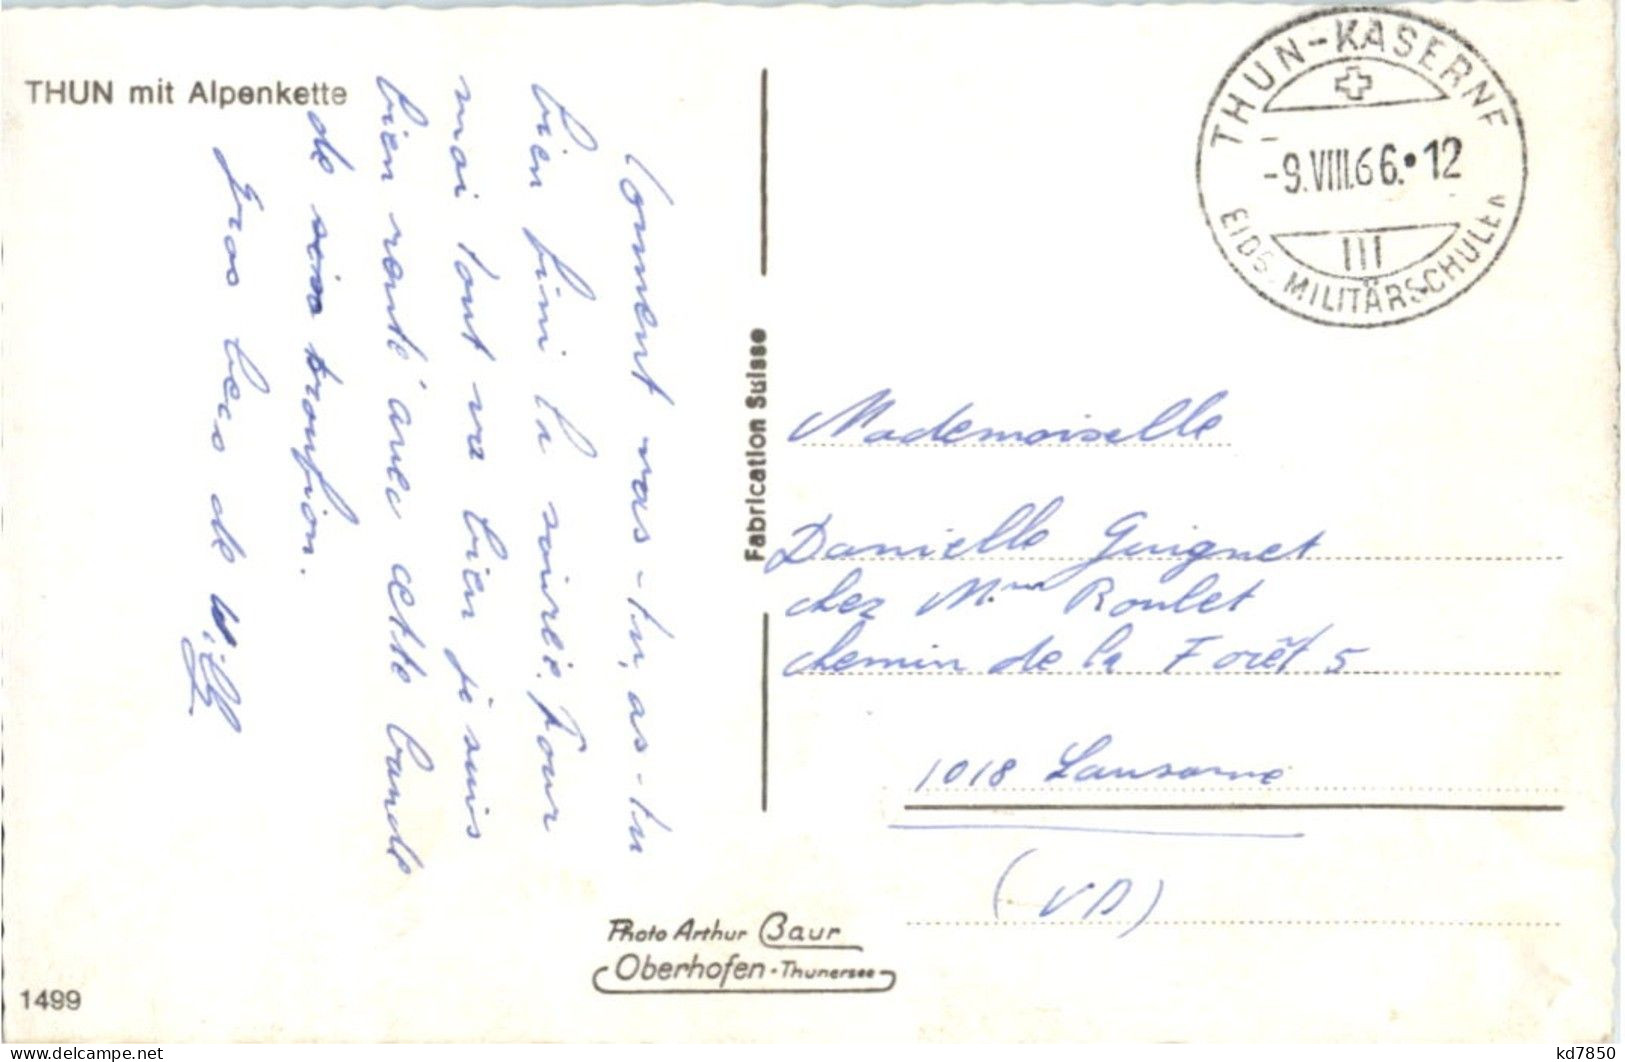 THUN mit Alpenkette
Comment vas-tu, as-tu
bien fini la soirée. Pour
moi tout va bien je suis
bien rentré avec cette bande
de troufion.
Gros becs de Willy
Fabrication Suisse
THUN-KASERNE
-9.VIII.66.•12
III
EIDG. MILITÄRSCHULEN
Mademoiselle
Danielle Guignet
chez Mme Roulet
chemin de la Forêt 5
1018 Lausanne
(VD)
Photo Arthur Baur
Oberhofen-Thunersee
1499
kd7850